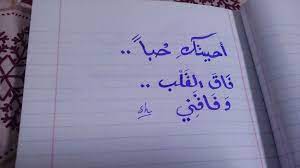 أحببتكِ حُباً ..
فَاقَ القَلْب ..
وَفَاقَني